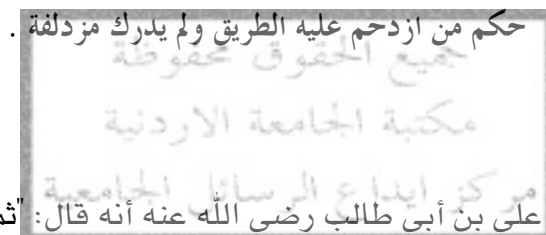 حكم من ازدحم عليه الطريق ولم يدرك مزدلفة .
جميع الحقوق محفوظة
مكتبة الجامعة الاردنية
مركز ايداع الرسائل الجامعية
علي بن أبي طالب رضي الله عنه أنه قال: "ثم